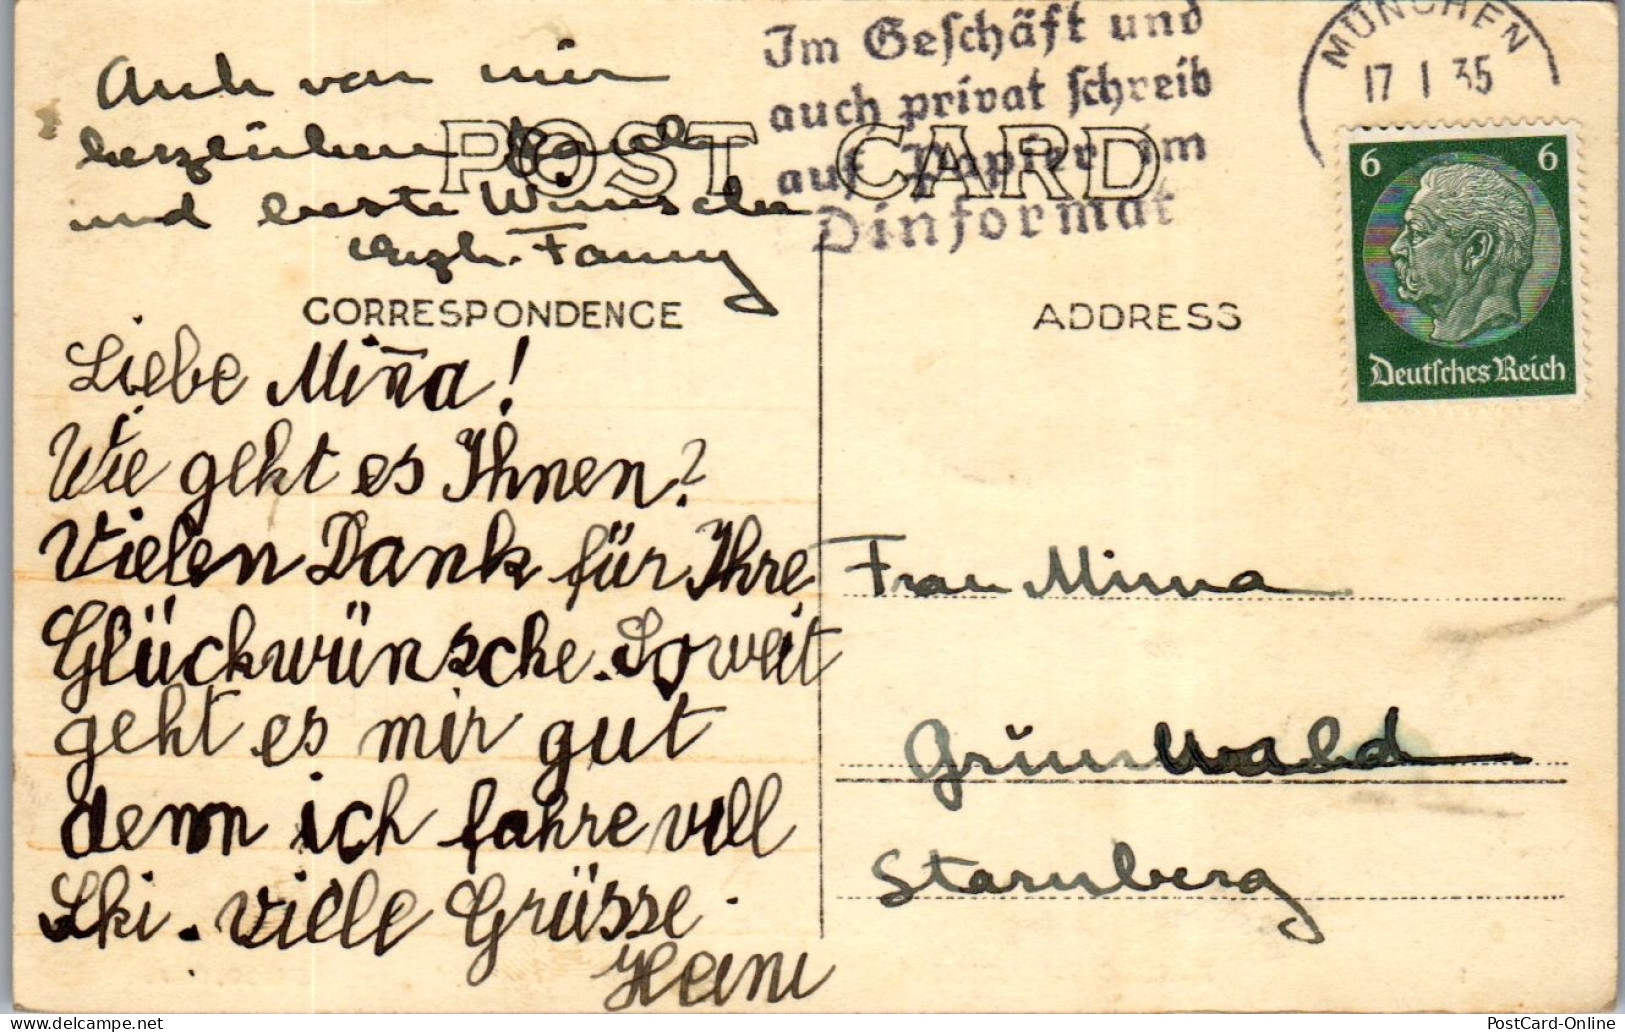 Auch von mir
herzlichen Dank
und beste Wünsche
Fanny
POST CARD
CORRESPONDENCE
ADDRESS
Liebe Miña!
Wie geht es Ihnen?
Vielen Dank für Ihre
Glückwünsche. Soweit
geht es mir gut
denn ich fahre viell
Ski. Viele Grüsse.
Heini
Im Geschäft und
auch privat schreib
auf Papier im
Dinformat
MÜNCHEN
17 1 35
6 6
Deutsches Reich
Frau Minna
Grünwald
Starnberg
PostCard-Online